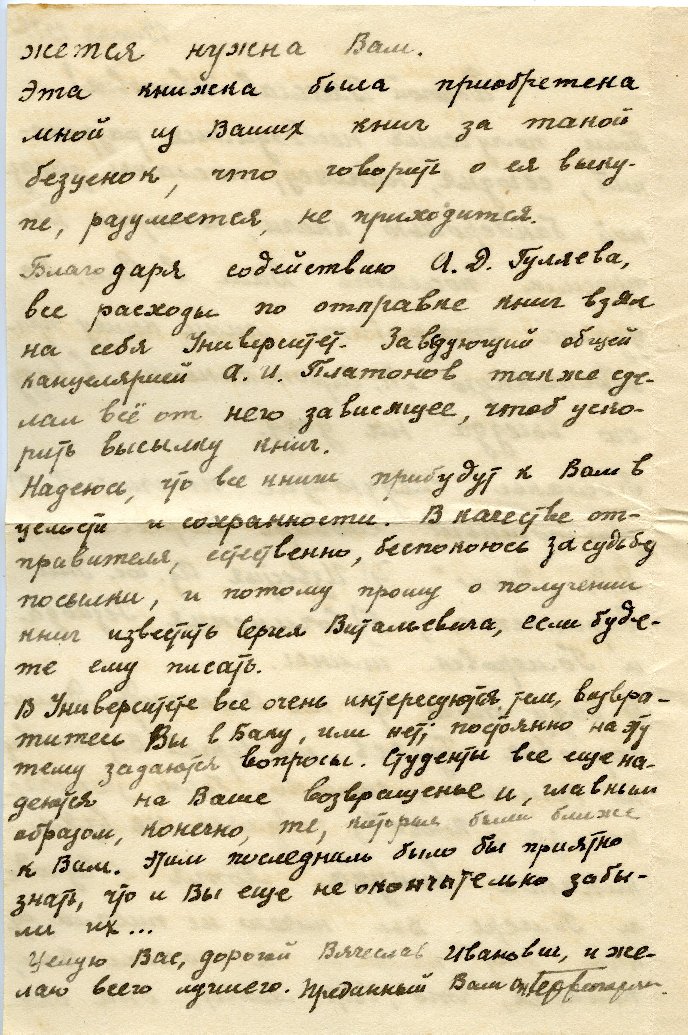 жется нужна Вам.
Эта книжка была приобретена
мной из Ваших книг за такой
безценок, что говорить о ея выку-
пе, разумеется, не приходится.
Благодаря содействию А. Д. Гуляева,
все расходы по отправке книг взял
на себя Университет. Заведующий общей
канцелярией А. И. Платонов также сде-
лал всё от него зависящее, чтоб уско-
рить высылку книг.
Надеюсь, что все книги прибудут к Вам в
целости и сохранности. В качестве от-
правителя, естественно, беспокоюсь за судьбу
посылки, и потому прошу о получении
книг известить Сергея Витальевича, если буде-
те ему писать.
В Университете все очень интересуются тем, возвра-
титесь Вы в Баку, или нет; постоянно на эту
тему задаются вопросы. Студенты все еще на-
деются на Ваше возвращенье и, главным
образом, конечно, те, которые были ближе
к Вам. Этим последним было бы приятно
знать, что и Вы еще не окончательно забы-
ли их...
Целую Вас, дорогой Вячеслав Иванович, и же-
лаю всего лучшего. Преданный Вам